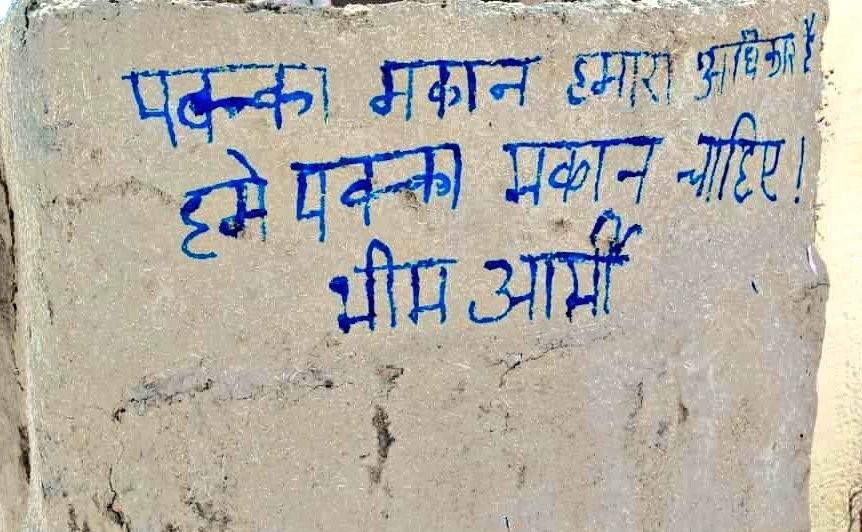 पक्का मकान हमारा अधिकार है
हमे पक्का मकान चाहिए!
भीम आर्मी